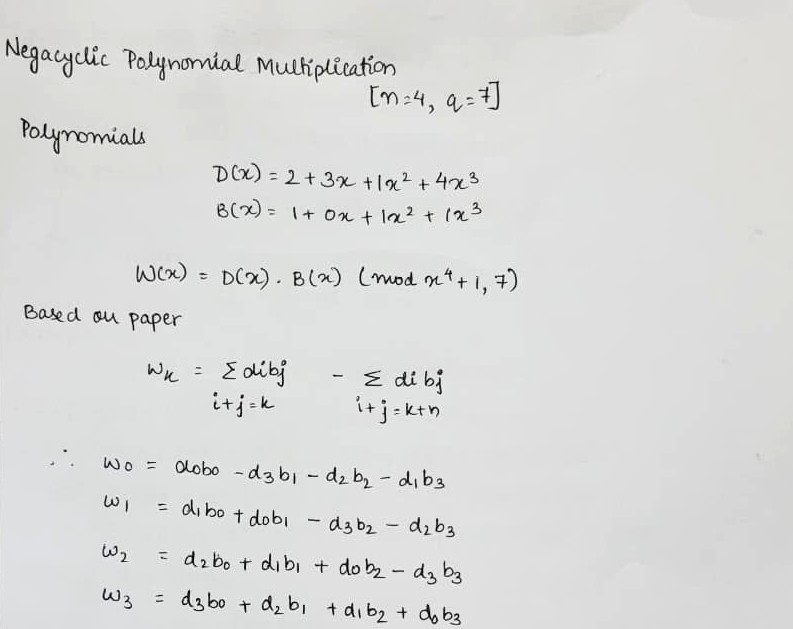 Negacyclic Polynomial Multiplication
[n=4, q=7]
Polynomials
D(x) = 2 + 3x + 1x² + 4x³
B(x) = 1 + 0x + 1x² + 1x³
W(x) = D(x) . B(x) (mod x⁴ + 1, 7)
Based on paper
Wₖ = Σ dibj - Σ dibj
i+j=k i+j=k+n
∴ W₀ = d₀b₀ - d₃b₁ - d₂b₂ - d₁b₃
W₁ = d₁b₀ + d₀b₁ - d₃b₂ - d₂b₃
W₂ = d₂b₀ + d₁b₁ + d₀b₂ - d₃b₃
W₃ = d₃b₀ + d₂b₁ + d₁b₂ + d₀b₃